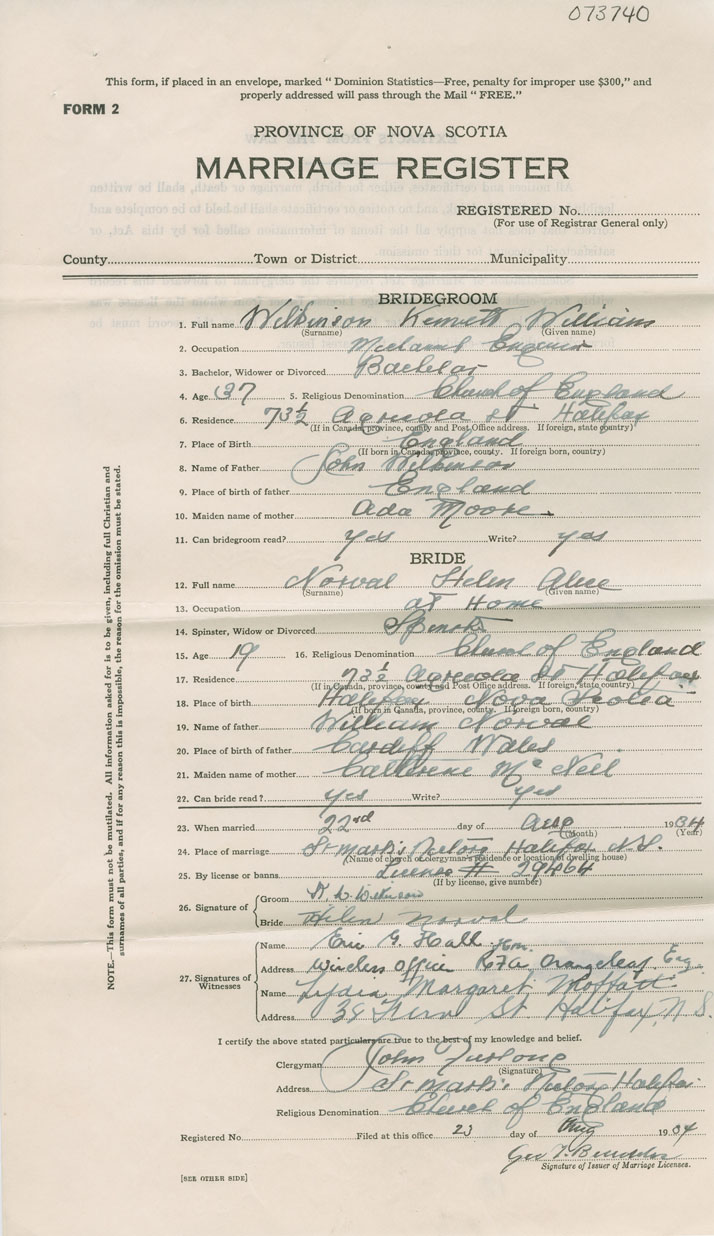 073740
This form, if placed in an envelope, marked “ Dominion Statistics—Free, penalty for improper use $300,” and
properly addressed will pass through the Mail “ FREE.”
FORM 2
PROVINCE OF NOVA SCOTIA
MARRIAGE REGISTER
REGISTERED No.
(For use of Registrar General only)
County Town or District Municipality
BRIDEGROOM
1. Full name Wilkinson Kenneth William
(Surname) (Given name)
2. Occupation
3. Bachelor, Widower or Divorced Bachelor
4. Age 37 5. Religious Denomination Church of England
6. Residence 73½ Agricola St Halifax
(If in Canada, province, county and Post Office address. If foreign, state country)
7. Place of Birth England
(If born in Canada, province, county. If foreign born, country)
8. Name of Father John Wilkinson
9. Place of birth of father England
10. Maiden name of mother Ada Moore
11. Can bridegroom read? yes Write? yes
BRIDE
12. Full name Norval Helen Alice
(Surname) (Given name)
13. Occupation at Home
14. Spinster, Widow or Divorced Spinster
15. Age 19 16. Religious Denomination Church of England
17. Residence 73½ Agricola St Halifax
(If in Canada, province, county and Post Office address. If foreign, state country)
18. Place of birth Halifax Nova Scotia
(If born in Canada, province, county. If foreign born, country)
19. Name of father William Norval
20. Place of birth of father Cardiff Wales
21. Maiden name of mother Catherine McNeil
22. Can bride read? yes Write? yes
23. When married 22nd day of Aug 1934
(Month) (Year)
24. Place of marriage St Mark's Rectory Halifax N.S.
(Name of church or clergyman's residence or location of dwelling house)
25. By license or banns License # 29464
(If by license, give number)
26. Signature of
Groom K. W. Wilkinson
Bride Helen Norval
27. Signatures of Witnesses
Name Eric G. Hall
Address Wireless Office RFA Orangeleaf
Name Lydia Margaret Moffatt
Address St Halifax, N.S.
I certify the above stated particulars are true to the best of my knowledge and belief.
Clergyman John Furlong
(Signature)
Address St Mark's Rectory Halifax
Religious Denomination Church of England
Registered No. Filed at this office 23 day of Aug 1934
Signature of Issuer of Marriage Licenses.
[SEE OTHER SIDE]
NOTE.—This form must not be mutilated. All information asked for is to be given, including full Christian and
surnames of all parties, and if for any reason this is impossible, the reason for the omission must be stated.